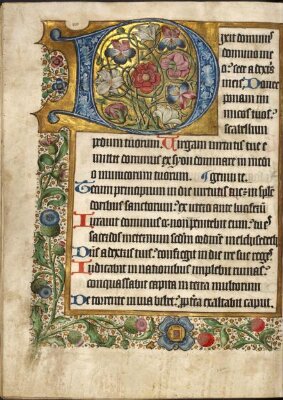 Dixit dominus
domino me
o: sede a dextris
meis. Donec
ponam ini
micos tuos:
scabellum
pedum tuorum. Virgam virtutis tue e
mittet dominus ex syon dominare in medio
inimicorum tuorum.
Tecum principium in die virtutis tue in sple
doribus sanctorum: ex utero ante luciferu
Iuravit dominus et non penitebit eum: tu es
sacerdos in eternum scdm ordine melchisedech
Dns a dextris tuis: confregit in die ire sue reges
Iudicabit in nationibus implebit ruinas:
conquassabit capita in terra multorum
De torrente in via bibet: propterea exaltabit caput.